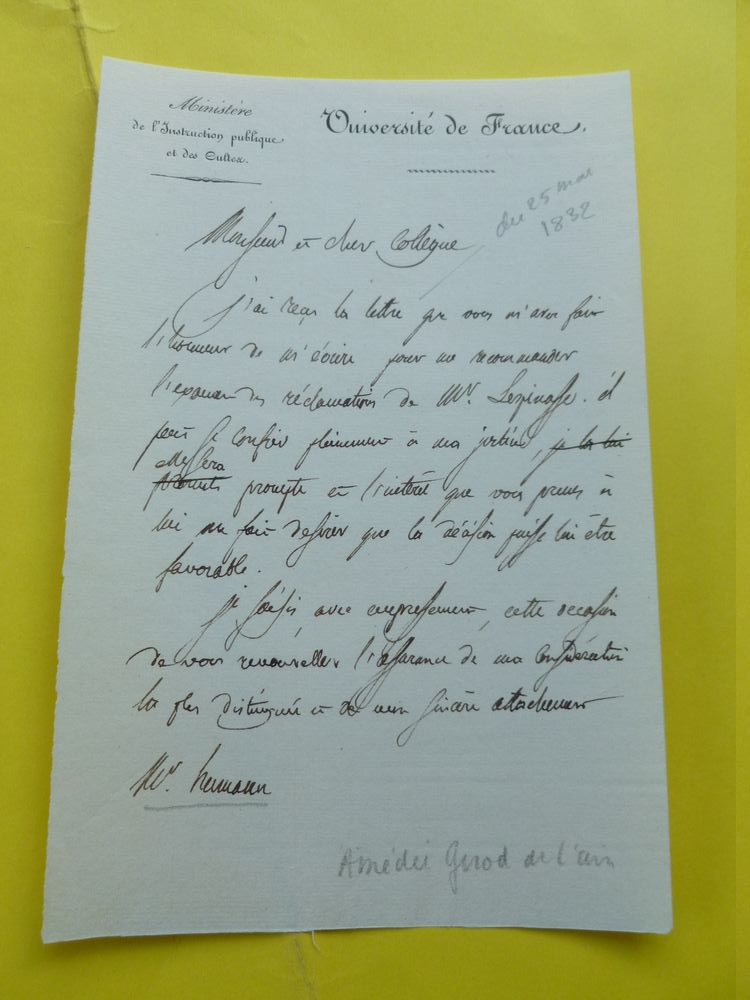 Ministère
de l'Instruction publique
et des Cultes.
Université de France.
du 25 mai
1832
Monsieur et cher Collègue
J'ai reçu la lettre que vous m'avez fait
l'honneur de m'écrire pour me recommander
l'examen des réclamations de Mr. Lespinasse. il
peut se confier pleinement à ma justice, je la lui
elle sera
promets prompte et l'intérêt que vous prenez à
lui me fait désirer que la décision puisse lui être
favorable.
je saisis avec empressement, cette occasion
de vous renouveller l'assurance de ma considération
la plus distinguée et de mon sincère attachement
Mr. hermann
Amédée Girod de l'ain